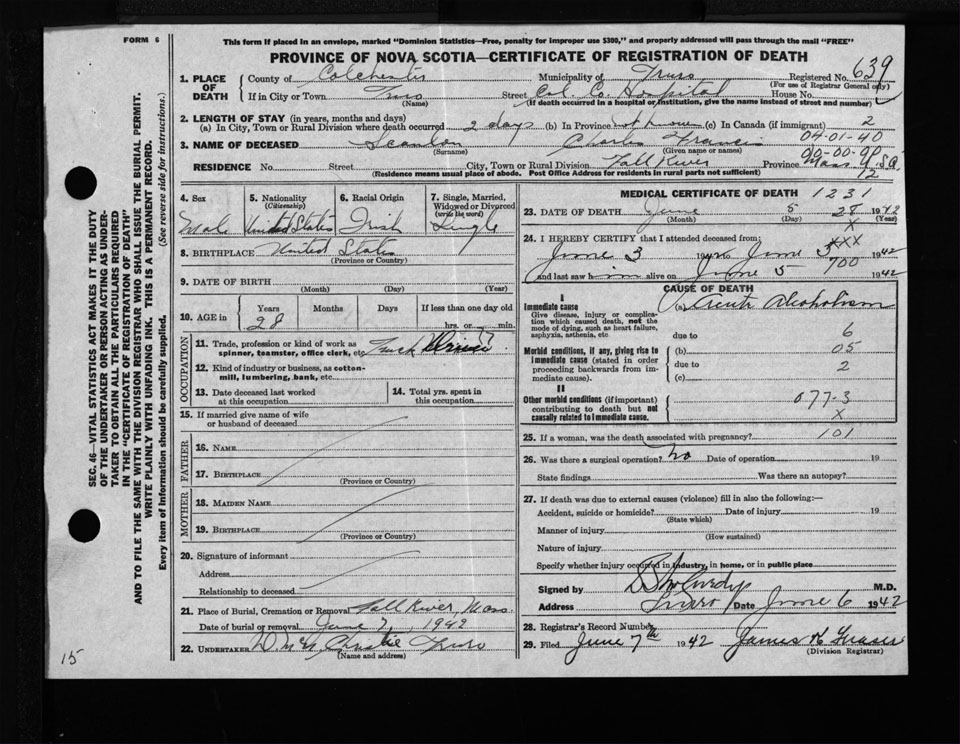 FORM 6
This form if placed in an envelope, marked "Dominion Statistics—Free, penalty for improper use $300," and properly addressed will pass through the mail "FREE"
PROVINCE OF NOVA SCOTIA—CERTIFICATE OF REGISTRATION OF DEATH
SEC. 46—VITAL STATISTICS ACT MAKES IT THE DUTY
OF THE UNDERTAKER OR PERSON ACTING AS UNDER-
TAKER TO OBTAIN ALL THE PARTICULARS REQUIRED
IN THE "CERTIFICATE OF REGISTRATION OF DEATH"
AND TO FILE THE SAME WITH THE DIVISION REGISTRAR WHO SHALL ISSUE THE BURIAL PERMIT.
WRITE PLAINLY WITH UNFADING INK. THIS IS A PERMANENT RECORD.
Every item of Information should be carefully supplied. (See reverse side for instructions.)
1. PLACE OF DEATH
County of Colchester Municipality of Truro Registered No. 639
(For use of Registrar General only)
If in City or Town Truro Street Col. Co. Hospital House No.
(Name) (If death occurred in a hospital or institution, give the name instead of street and number)
2. LENGTH OF STAY (in years, months and days) 2
(a) In City, Town or Rural Division where death occurred 2 days (b) In Province not known (c) In Canada (if immigrant)
04-01-40
3. NAME OF DECEASED Scanlon Charles Francis
(Surname) (Given name or names)
00-00-00
RESIDENCE No. Street City, Town or Rural Division Fall River Province Mass U.S.A.
(Residence means usual place of abode. Post Office Address for residents in rural parts not sufficient) 12
4. Sex 5. Nationality (Citizenship) 6. Racial Origin 7. Single, Married, Widowed or Divorced (write the word)
Male United States Irish Single
8. BIRTHPLACE United States
(Province or Country)
9. DATE OF BIRTH
(Month) (Day) (Year)
10. AGE in Years Months Days If less than one day old
28 hrs. or min.
OCCUPATION
11. Trade, profession or kind of work as spinner, teamster, office clerk, etc. Truck Driver
12. Kind of industry or business, as cotton-mill, lumbering, bank, etc.
13. Date deceased last worked at this occupation 14. Total yrs. spent in this occupation
15. If married give name of wife or husband of deceased
FATHER
16. NAME
17. BIRTHPLACE
(Province or Country)
MOTHER
18. MAIDEN NAME
19. BIRTHPLACE
(Province or Country)
20. Signature of informant
Address
Relationship to deceased
21. Place of Burial, Cremation or Removal Fall River, Mass.
Date of burial or removal June 7, 1942
22. UNDERTAKER Christie Truro
(Name and address)
MEDICAL CERTIFICATE OF DEATH 1231
23. DATE OF DEATH June 5 28 1942
(Month) (Day) (Year)
X
24. I HEREBY CERTIFY that I attended deceased from: XXX
June 3 1942 to June 5 1942
700
and last saw him alive on June 5 1942
CAUSE OF DEATH
I
Immediate cause (a) Acute Alcoholism
Give disease, injury or complication which caused death, not the mode of dying, such as heart failure, asphyxia, asthenia, etc
due to 6
Morbid conditions, if any, giving rise to immediate cause (stated in order proceeding backwards from immediate cause).
(b) 05
due to 2
(c)
II
Other morbid conditions (if important) contributing to death but not causally related to immediate cause.
077-3
X
25. If a woman, was the death associated with pregnancy? 101
26. Was there a surgical operation? No Date of operation 19
State findings Was there an autopsy?
27. If death was due to external causes (violence) fill in also the following:—
Accident, suicide or homicide? Date of injury 19
(State which)
Manner of injury
(How sustained)
Nature of injury
Specify whether injury occurred in industry, in home, or in public place
Signed by M.D.
Address Truro Date June 6 1942
28. Registrar's Record Number
29. Filed June 7th 1942 James
(Division Registrar)
15